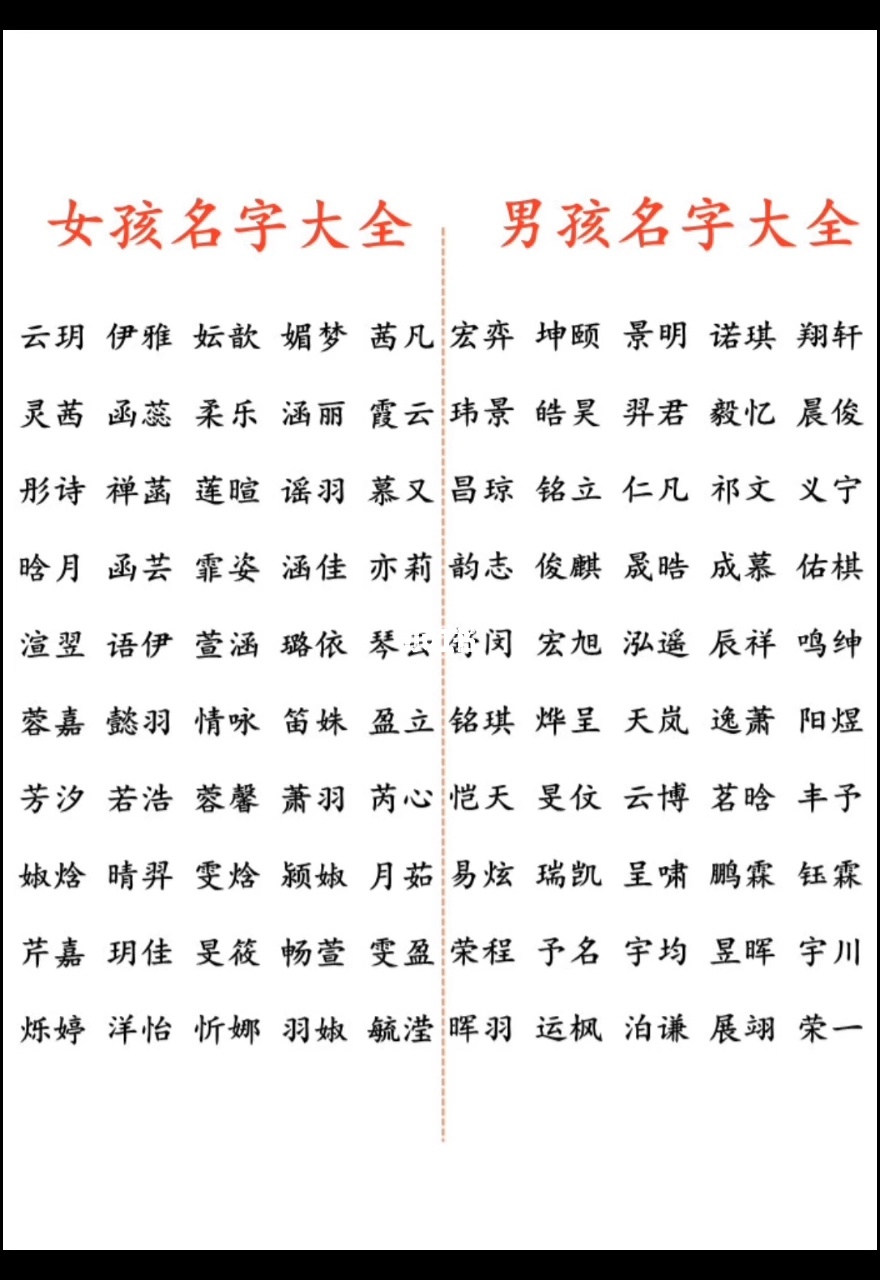 女孩名字大全
云玥 伊雅 妘歆 媚梦 茜凡
灵茜 函蕊 柔乐 涵丽 霞云
彤诗 禅菡 莲暄 谣羽 慕又
晗月 函芸 霏姿 涵佳 亦莉
渲翌 语伊 萱涵 璐依 琴
蓉嘉 懿羽 情咏 笛姝 盈立
芳汐 若浩 蓉馨 萧羽 芮心
婌焓 晴羿 雯焓 颍婌 月茹
芹嘉 玥佳 旻筱 畅萱 雯盈
烁婷 洋怡 忻娜 羽婌 毓滢
男孩名字大全
宏弈 坤颐 景明 诺琪 翔轩
玮景 皓昊 羿君 毅忆 晨俊
昌琼 铭立 仁凡 祁文 义宁
韵志 俊麒 晟晧 成慕 佑棋
闵 宏旭 泓遥 辰祥 鸣绅
铭琪 烨呈 天岚 逸萧 阳煜
恺天 旻仗 云博 茗晗 丰予
易炫 瑞凯 呈啸 鹏霖 钰霖
荣程 予名 宇均 昱晖 宇川
晖羽 运枫 泊谦 展翊 荣一